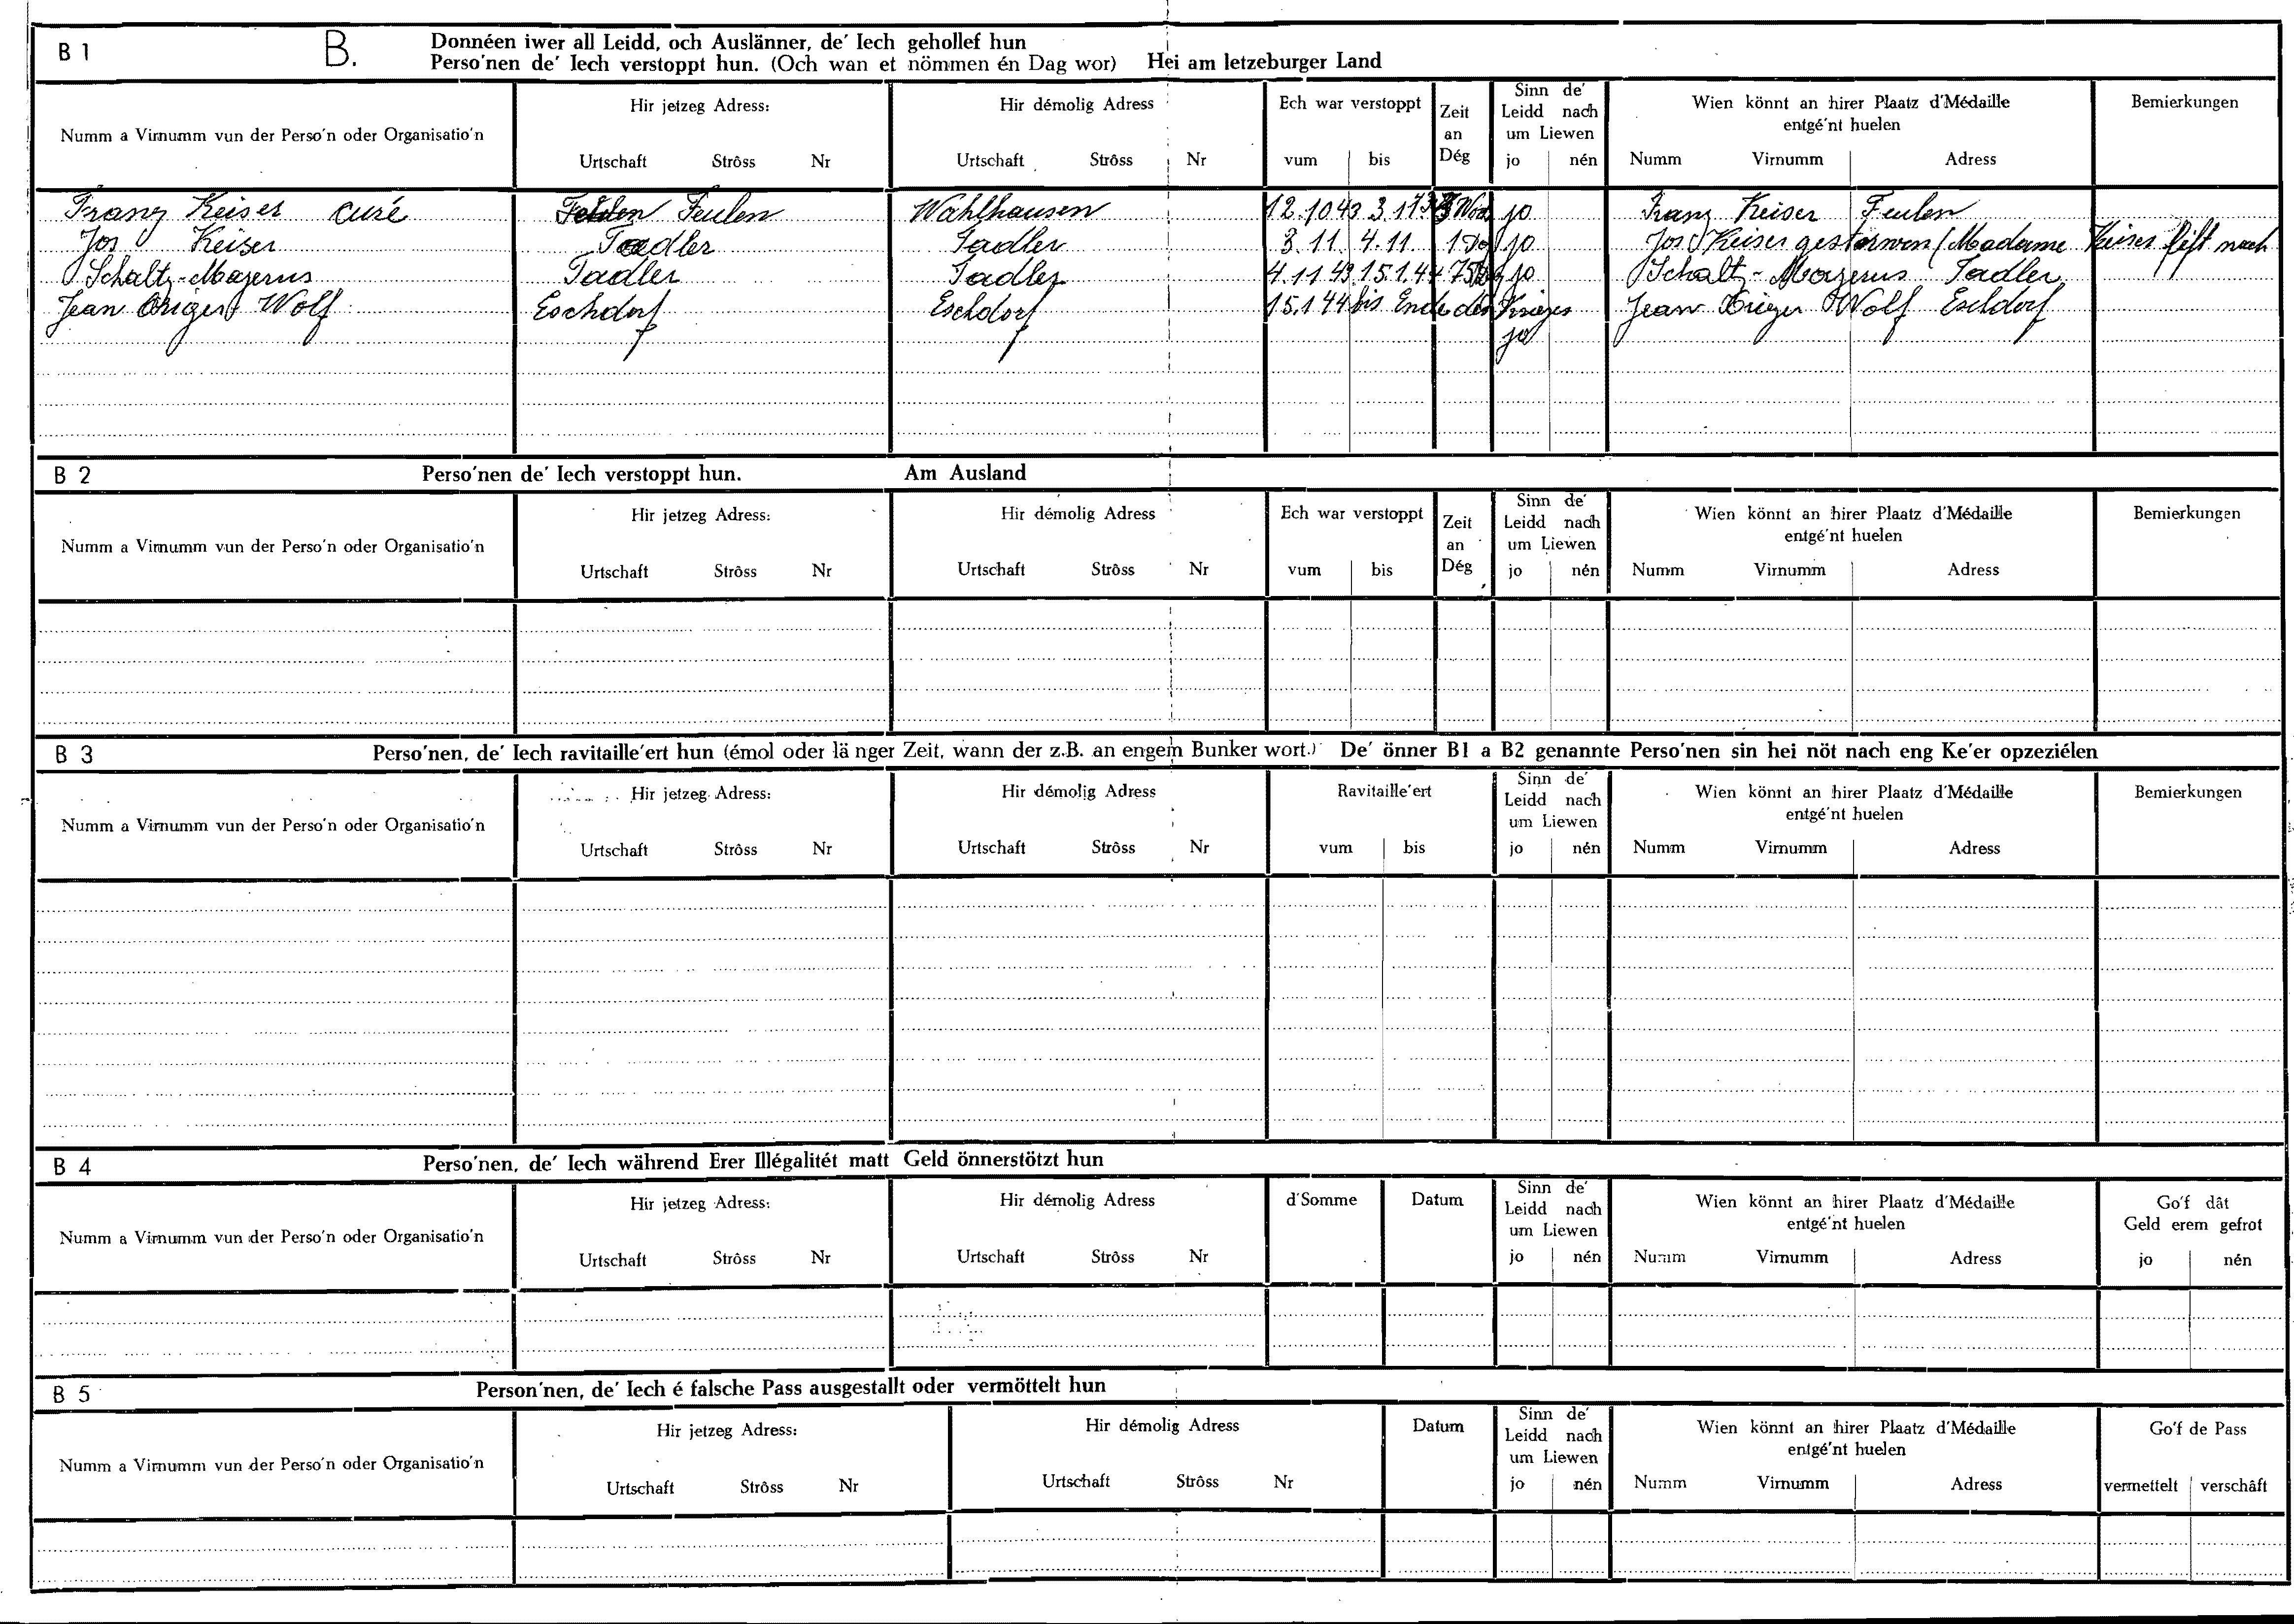 B 1 B. Donnéen iwer all Leidd, och Auslänner, de' Iech gehollef hun
Perso'nen de' Iech verstoppt hun. (Och wan et nömmen én Dag wor) Hei am letzeburger Land
Numm a Virnumm vun der Perso'n oder Organisatio'n
Hir jetzeg Adress:
Urtschaft Strôss Nr
Hir démolig Adress
Urtschaft Strôss Nr
Ech war verstoppt
vum bis
Zeit
an
Dég
Sinn de'
Leidd nach
um Liewen
jo nén
Wien könnt an hirer Plaatz d'Médaille
entgé'nt huelen
Numm Virnumm Adress
Bemierkungen
Franz Keiser curé Feulen Wahlhausen 12.10.43 3.11 jo Franz Keiser Feulen
Jos Keiser Tadler Tadler 3.11 4.11 jo Jos Keiser gestorwen (Madame Keiser
Schaltz-Majerus Tadler Tadler 4.11.43 15.1.44 jo Schaltz-Majerus Tadler
Jean Origer Wolf Eschdorf Eschdorf 15.1.44 bis Ende des Krieges Jean Origer Wolf Eschdorf
jo
B 2 Perso'nen de' Iech verstoppt hun. Am Ausland
Numm a Virnumm vun der Perso'n oder Organisatio'n
Hir jetzeg Adress:
Urtschaft Strôss Nr
Hir démolig Adress
Urtschaft Strôss Nr
Ech war verstoppt
vum bis
Zeit
an
Dég
Sinn de'
Leidd nach
um Liewen
jo nén
Wien könnt an hirer Plaatz d'Médaille
entgé'nt huelen
Numm Virnumm Adress
Bemierkungen
B 3 Perso'nen, de' Iech ravitaille'ert hun (émol oder länger Zeit, wann der z.B. an engem Bunker wort.) De' önner B1 a B2 genannte Perso'nen sin hei nöt nach eng Ke'er opzeziélen
Numm a Virnumm vun der Perso'n oder Organisatio'n
Hir jetzeg Adress:
Urtschaft Strôss Nr
Hir démolig Adress
Urtschaft Strôss Nr
Ravitaille'ert
vum bis
Sinn de'
Leidd nach
um Liewen
jo nén
Wien könnt an hirer Plaatz d'Médaille
entgé'nt huelen
Numm Virnumm Adress
Bemierkungen
B 4 Perso'nen, de' Iech während Erer Illégalitét matt Geld önnerstötzt hun
Numm a Virnumm vun der Perso'n oder Organisatio'n
Hir jetzeg Adress:
Urtschaft Strôss Nr
Hir démolig Adress
Urtschaft Strôss Nr
d'Somme
Datum
Sinn de'
Leidd nach
um Liewen
jo nén
Wien könnt an hirer Plaatz d'Médaille
entgé'nt huelen
Numm Virnumm Adress
Go'f dât
Geld erem gefrot
jo nén
B 5 Person'nen, de' Iech é falsche Pass ausgestallt oder vermöttelt hun
Numm a Virnumm vun der Perso'n oder Organisatio'n
Hir jetzeg Adress:
Urtschaft Strôss Nr
Hir démolig Adress
Urtschaft Strôss Nr
Datum
Sinn de'
Leidd nach
um Liewen
jo nén
Wien könnt an hirer Plaatz d'Médaille
entgé'nt huelen
Numm Virnumm Adress
Go'f de Pass
vermettelt verschâft